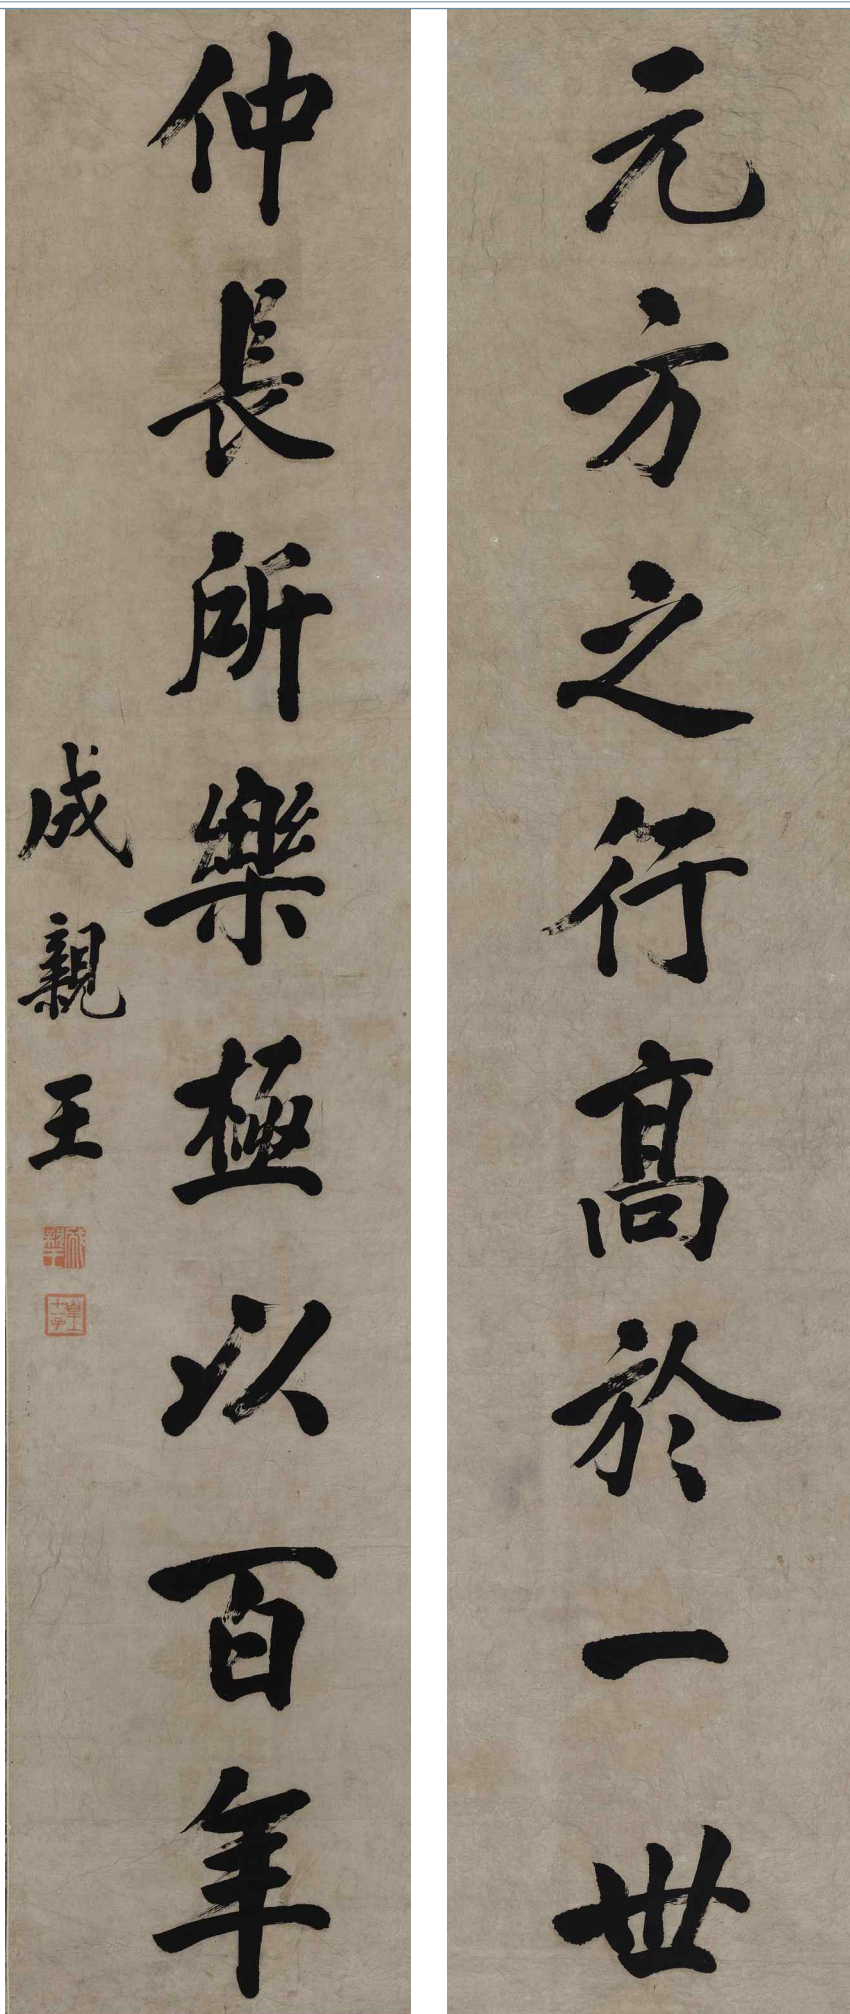 元方之行高於一世
仲長所樂極以百年
成親王
成親王
皇十一子